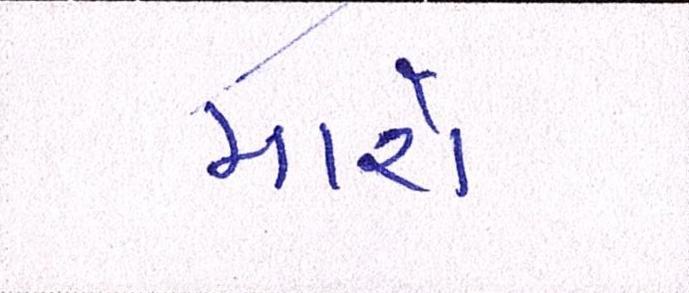 મારો